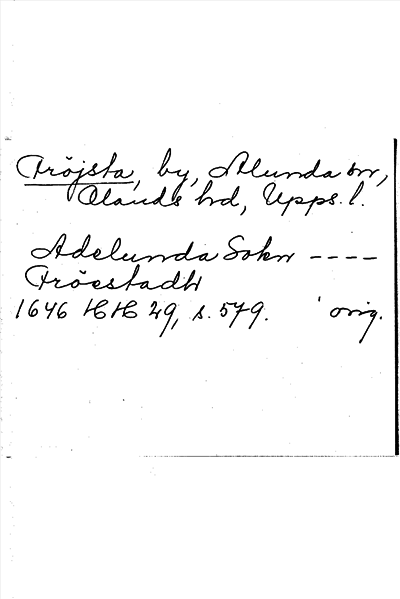 Fröjsta, by, Alunda sn,
Olands hd, Upps. l.
Adelunda Sokn ----
Fröestadh
1646 HH 29, s. 579. orig.